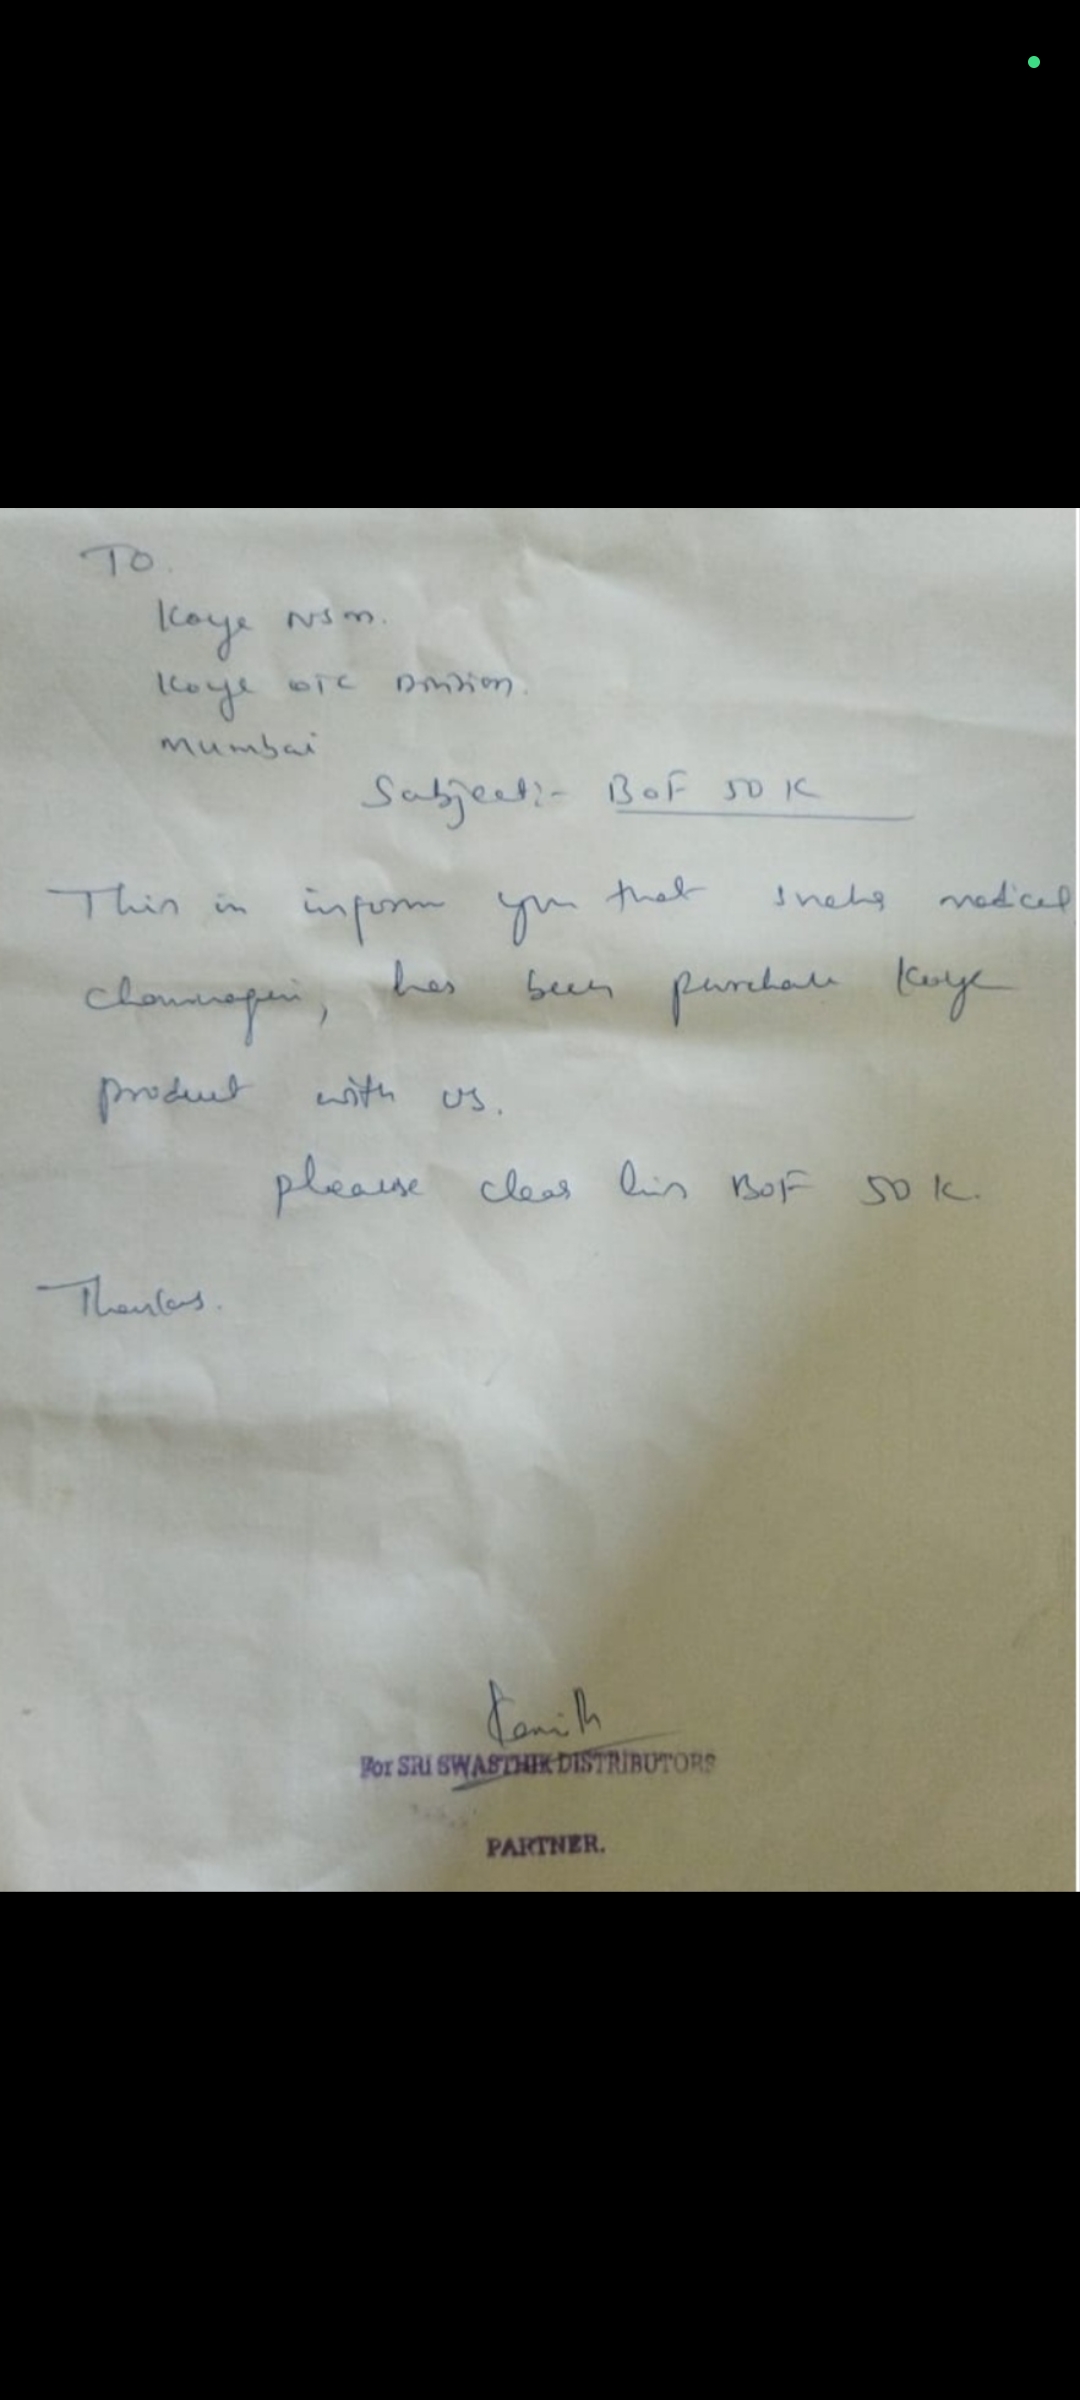 To.
Koye NSM.
Koye OTC Division.
Mumbai
Subject:- BOF 50 K
This is inform you that sneha medical
channagiri, has been purchase Koye
product with us.
pleause clear his BOF 50 K.
Thanks.
For SRI SWASTHIK DISTRIBUTORS
PARTNER.